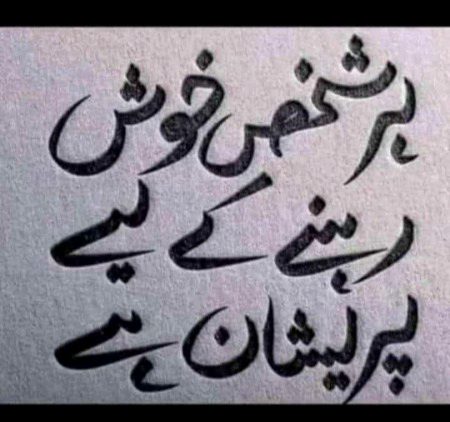 ہر شخص خوش
رہنے کے لیے
پریشان ہے